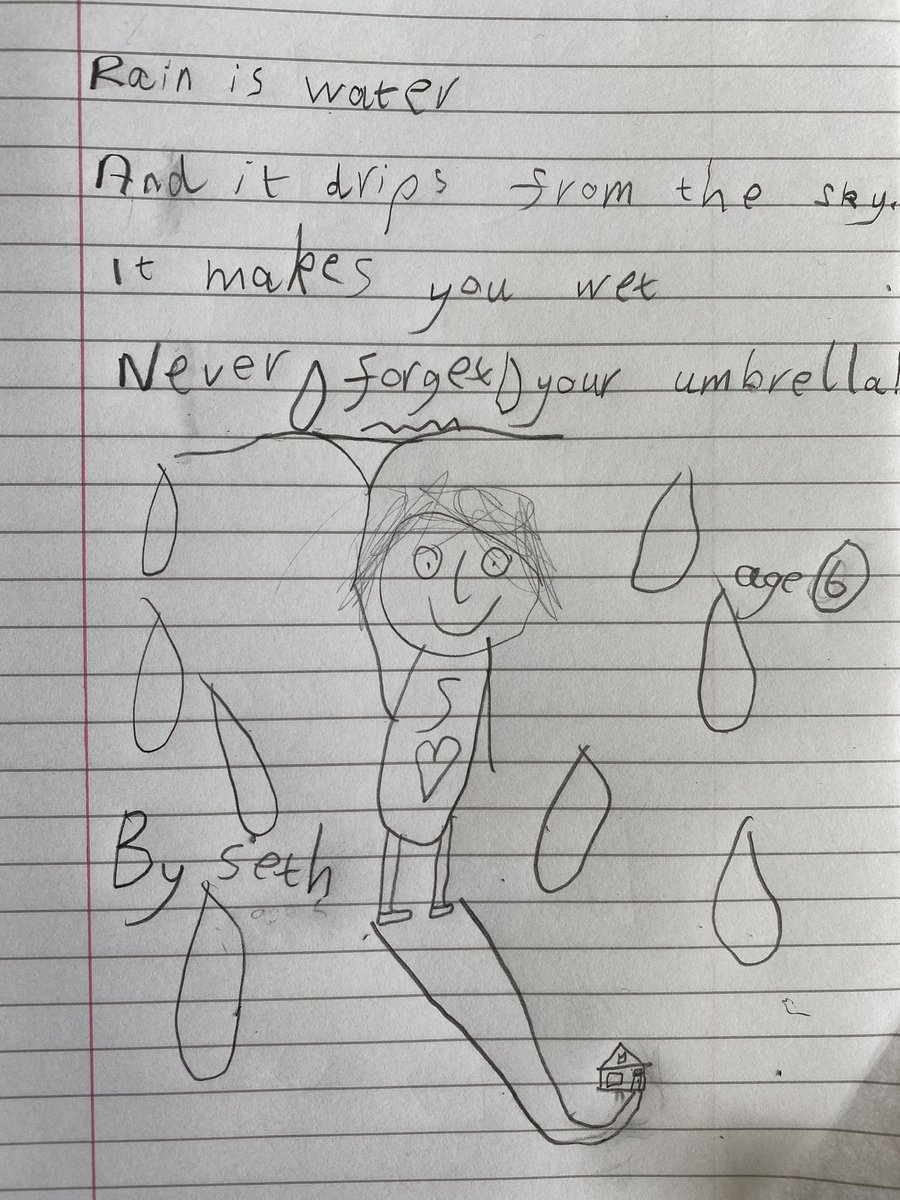 Rain is water
And it drips from the sky.
it makes you wet
Never forget your umbrella!
age 6
S
By seth